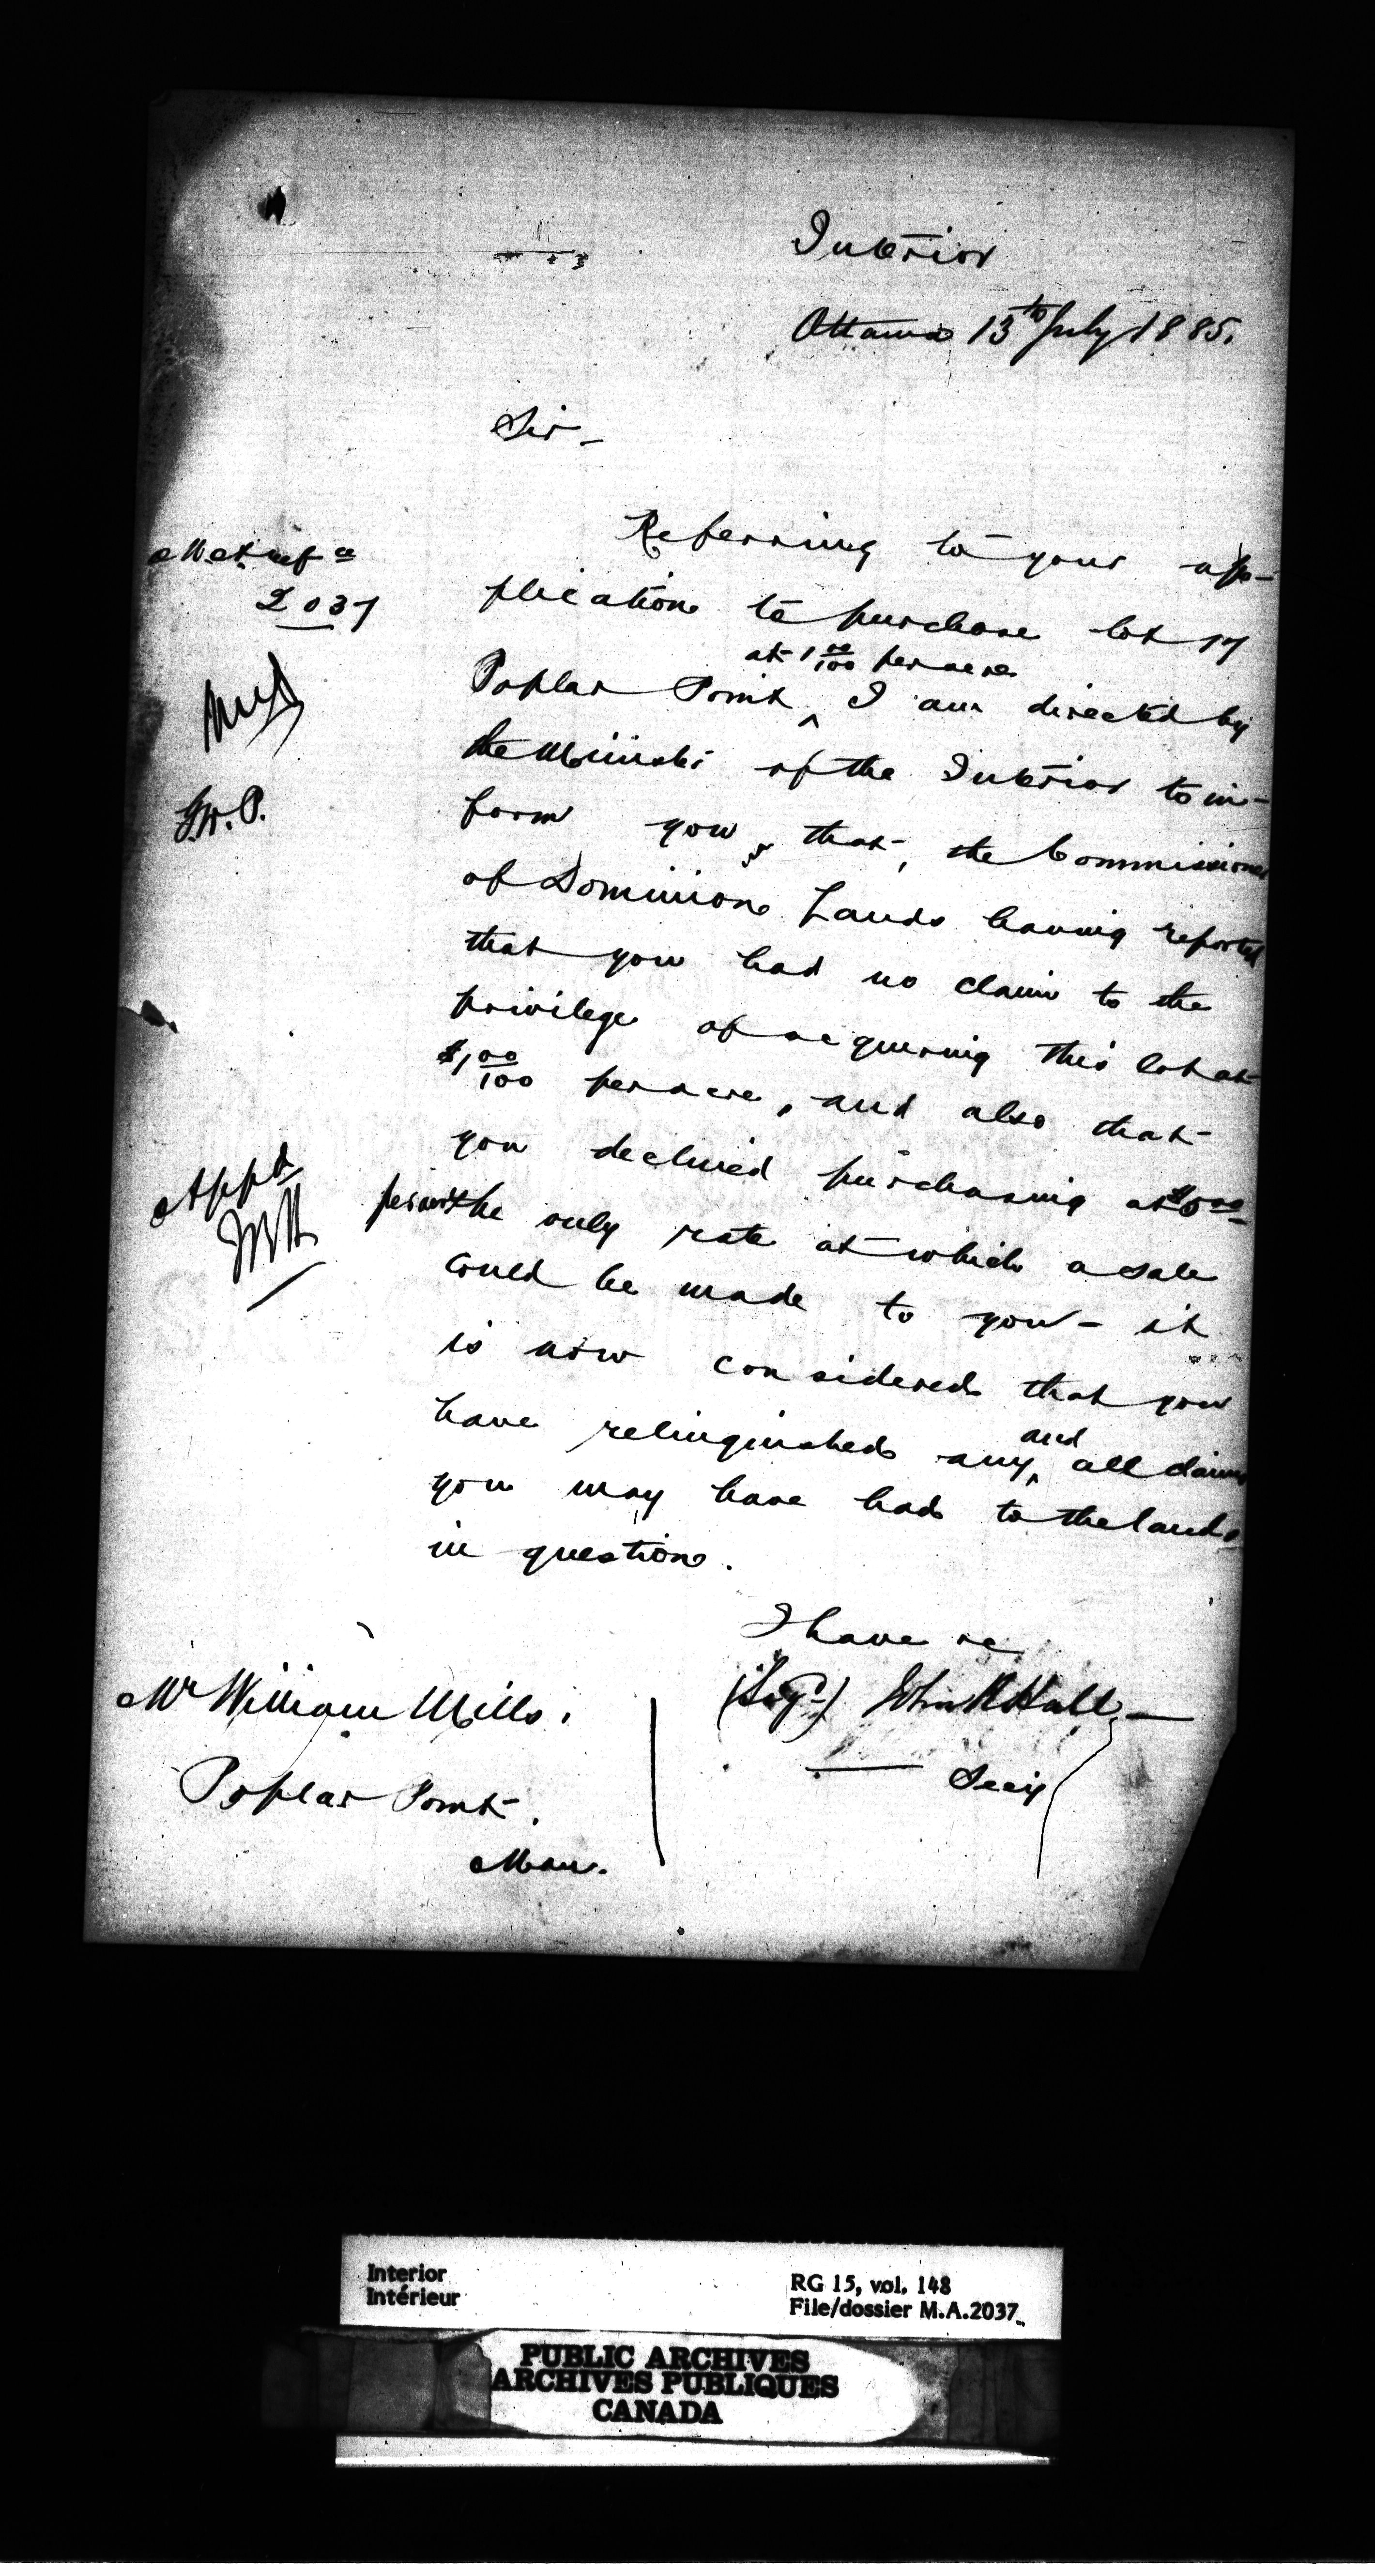 Interior
Ottawa 13th July 1885.
Sir -
Referring to your ap-
plication to purchase lot 17
at 1 00/100 per acre
Poplar Point ^ I am directed by
the Minister of the Interior to in-
form you, that, the Commissioner
of Dominion Lands having reported
that you had no claim to the
privilege of acquiring this lot at
$1 00/100 per acre, and also that
you declined purchasing at $5 00
per acre the only rate at which a sale
could be made to you - it
is now considered that you
have relinquished any ^ and all claims
you may have had to the lands
in question.
I have &c
(Sgd) John R Hall
Secy
Mr William Mills.
Poplar Point.
Man.
2037
G.W.P.
Appd
Interior
Intérieur
RG 15, vol. 148
File/dossier M.A.2037
PUBLIC ARCHIVES
ARCHIVES PUBLIQUES
CANADA